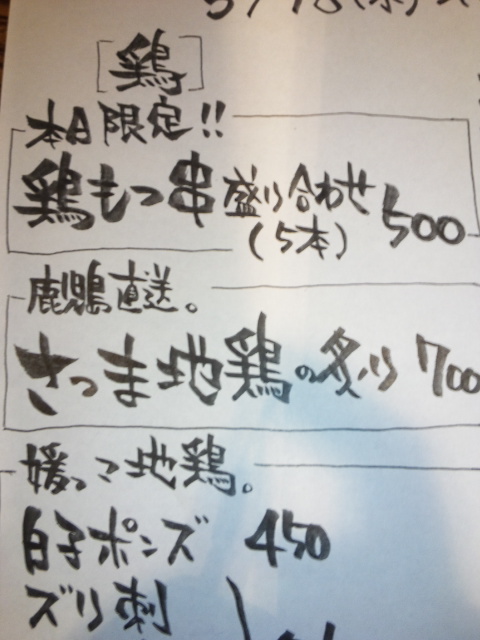 [鶏]
本日限定!!
鶏もつ串盛り合わせ 500
(5本)
鹿児島直送。
さつま地鶏の炙り 700
媛っこ地鶏。
白子ポンズ 450
ズリ刺